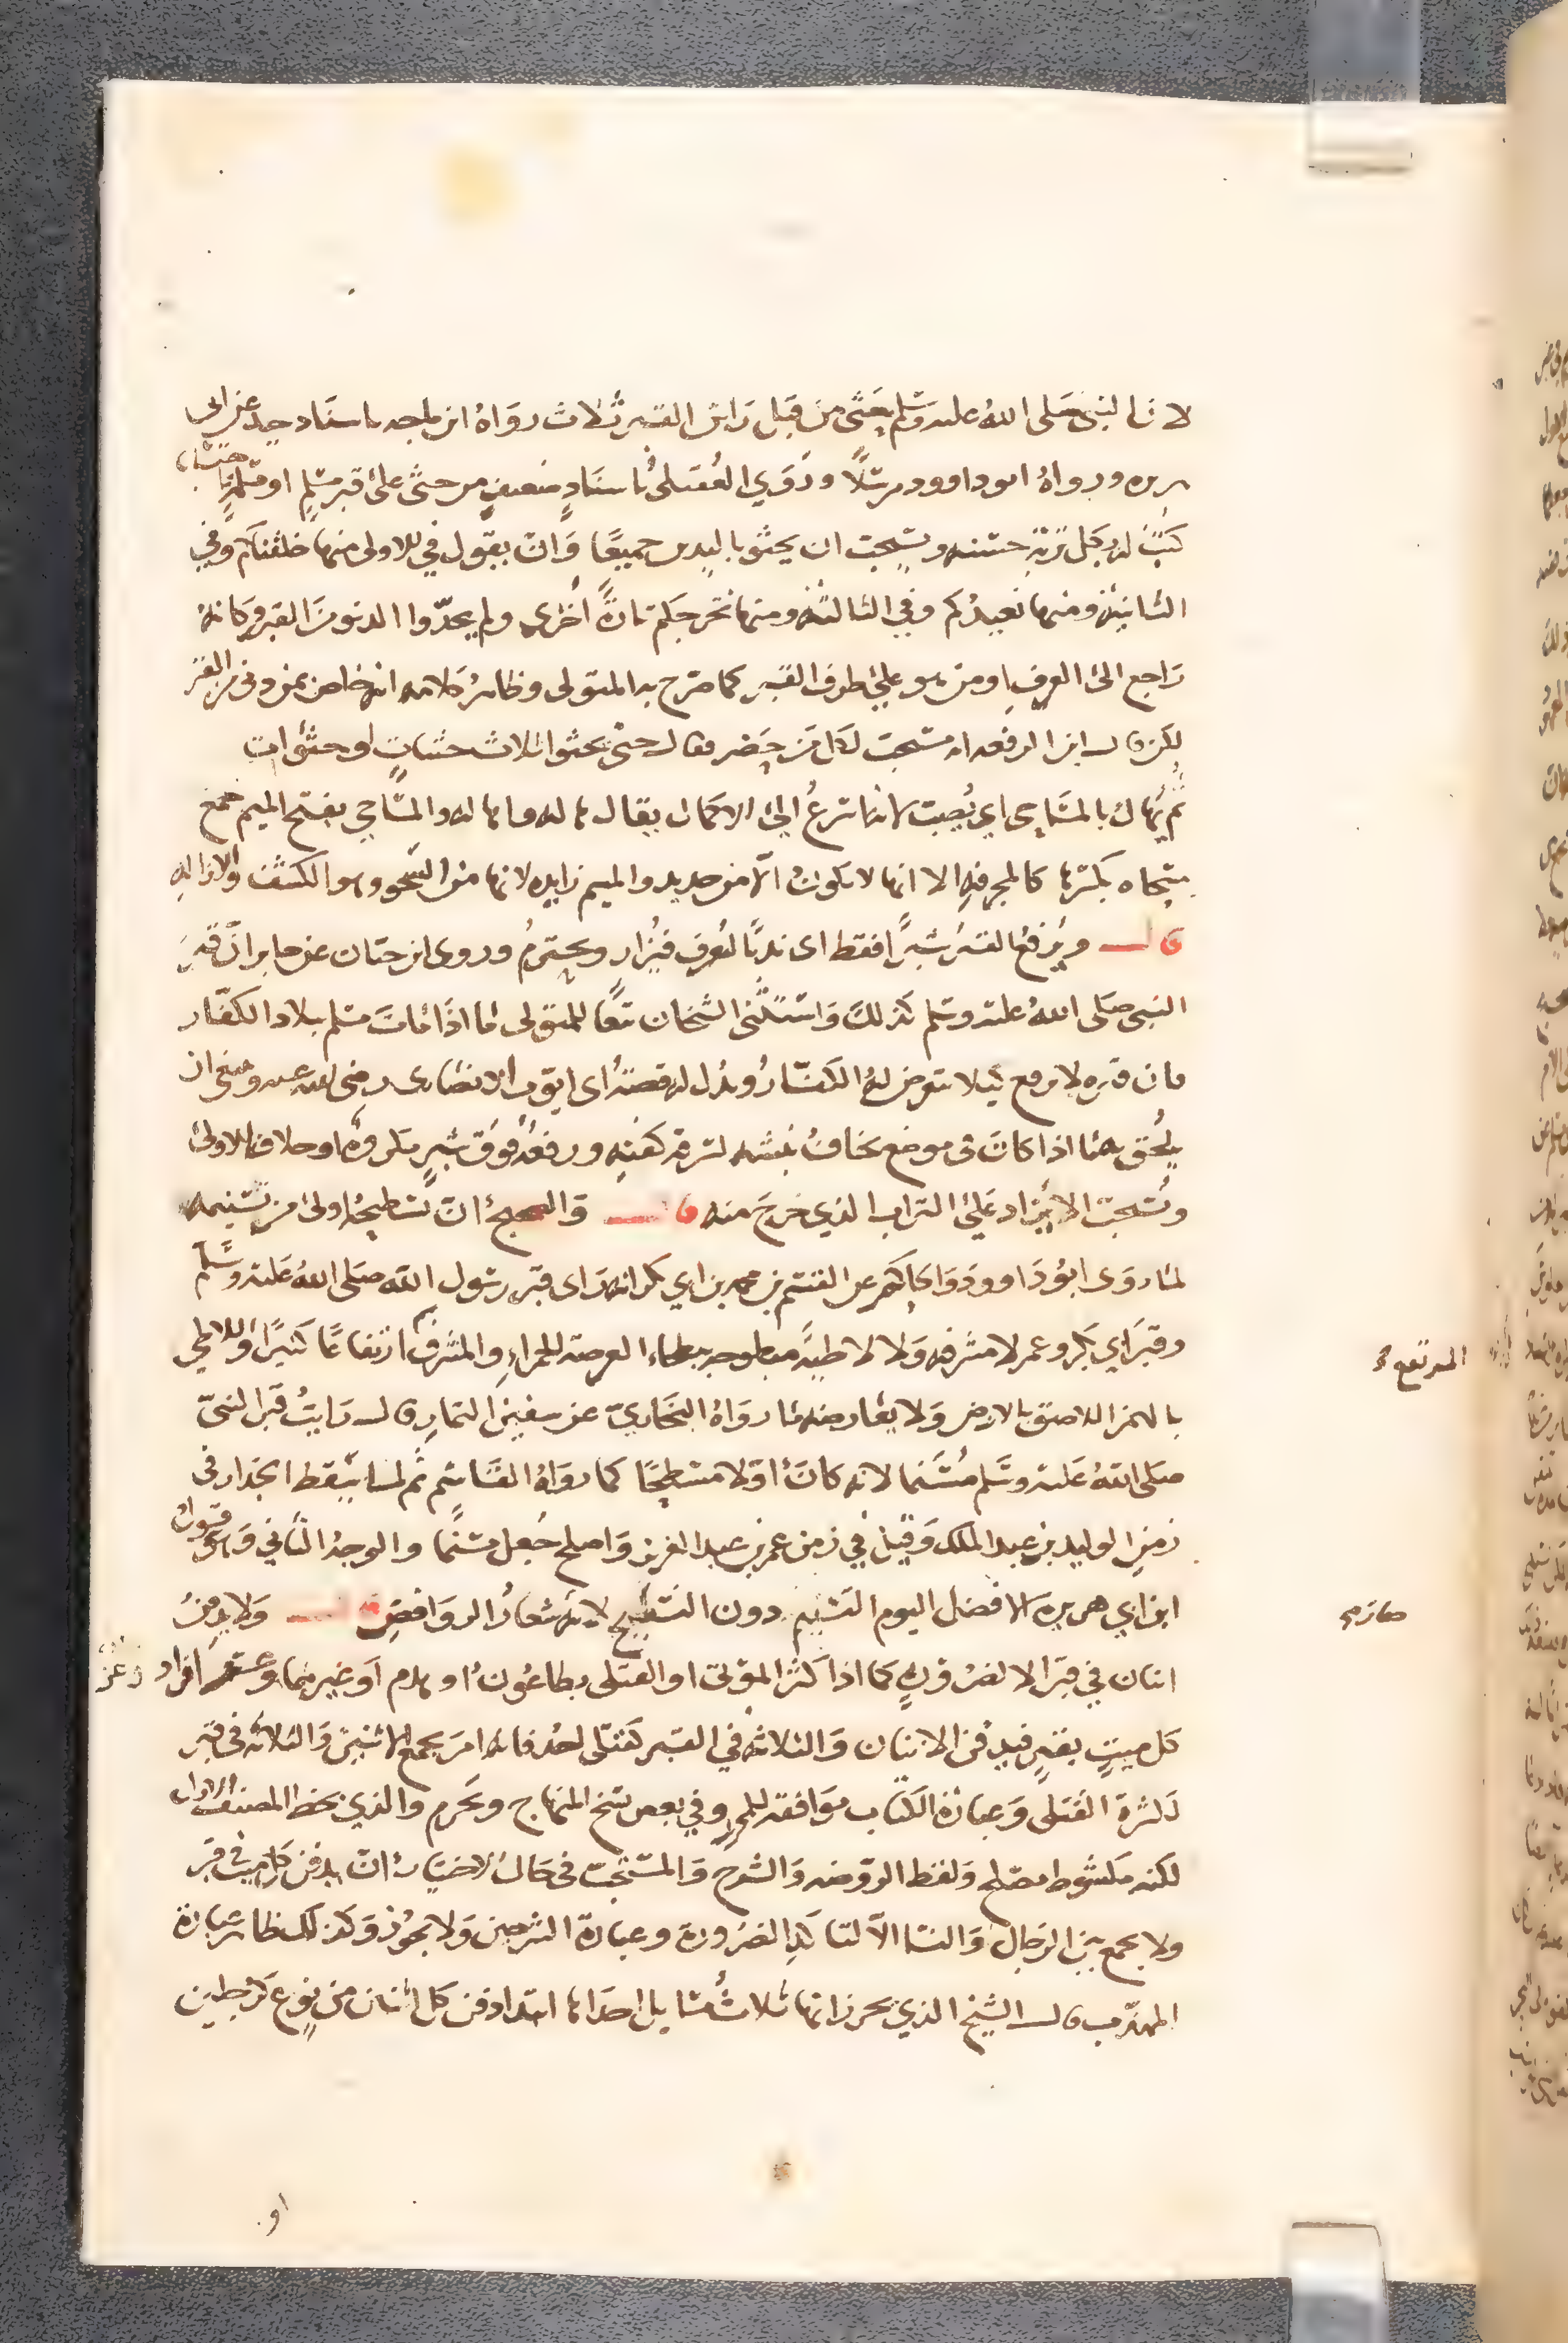 لان النبي صلى الله عليه وسلم حثى من قبل راس القبر ثلاث رواه ابن ماجه باسناد جيد عن ابي
هريره ورواه ابو داوود مرسلا وروي العقيلي باسناد ضعيف من حثى على قبر مسلم او مسلمة حثيا
كتب له بكل تربة حسنه ويستحب ان يحثو باليدين جميعا وان يقول في الاولى منها خلقناكم وفي
الثانية ومنها نعيدكم وفي الثالثة ومنها نخرجكم تارة اخرى ولم يحدوا الدنو من القبر وكانه
راجع الى العرف او من هو على طرف القبر كما صرح به المتولي وظاهر كلامه انه خاص بمن دنى من القبر
لكن قال ابن الرفعه انه مستحب لكل من حضر فقال حتى يحثوا ثلاث حثيات او حثوات
ثم يهال بالمساحي اي يصب لانها شرع الى الاكمال يقال هاله والمساحي بفتح الميم جمع
مسحاه بكسرها كالمجرفه الا انها لا تكون الا من حديد والميم زايده لانها من السحو وهو الكشف والازاله
قال ويرفع القبر شبرا فقط اى ندبا ليعرف فيزار ويحترم وروى ابن حبان عن جابر ان قبر
النبي صلى الله عليه وسلم كذلك واستثنى الشيخان تبعا للمتولي ما اذا مات مسلم ببلاد الكفار
فان قبره لا يرفع كيلا يتعرض له الكفار ويدل له قصة ابي ايوب الانصارى رضي الله عنه وينبغي ان
يلحق بهما اذا كان في موضع يخاف نبشه لسرقة كفنه ورفعه فوق شبر مكروه او خلاف الاولى
ويستحب الا يزاد على التراب الذي خرج منه قال والصحيح ان تسطيحه اولى من تسنيمه
لما روى ابو داوود والحاكم عن القسم بن محمد بن ابي بكر انه راى قبر رسول الله صلى الله عليه وسلم
وقبر ابي بكر وعمر لا مشرفه ولا لاطية مبطوحه ببطحاء العرصة الحمراء والمشرف ارتفاعا كثيرا واللاطي
المرتفع
بالهمز اللاصق بالارض ولا يعارضه ما رواه البخاري عن سفين التمار قال رايت قبر النبي
صلى الله عليه وسلم مسنما لانه كان اولا مسطحا كما رواه القاسم ثم لما سقط الجدار في
زمن الوليد بن عبد الملك وقيل في زمن عمر بن عبد العزيز واصلح جعل مسنما والوجه الثاني وهو قول
ابن ابي هريرة الافضل اليوم التسنيم دون التسطيح لانه شعار الروافض قال ولا يدفن
اثنان في قبر الا لضرورة كما اذا كثر الموتى او القتلى بطاعون او هدم او غيرهما وعسر افراد
كل ميت بقبر فيدفن الاثنان والثلاثة في القبر كقتلى احد فانه امر بجمع الاثنين والثلاثه في قبر
لكثرة القتلى وعبارة الكتاب موافقه للمحرر وفي بعض نسخ المنهاج ويحرم والذي بخط المصنف الاول
لكنه مكشوط مصلح ولفظ الروضه والشرح والمستحب في حال الاختيار ان يدفن كل ميت في قبر
ولا يجمع بين الرجال والنسا الا لتاكد الضرورة وعبارة السرخسي ولا يجوز وكذلك ظاهر عبارة
المهذب قال الشيخ الذي تحرر انها ثلاث مسايل احداها ابتداء دفن كل اثنان من نوع كرجلين
او